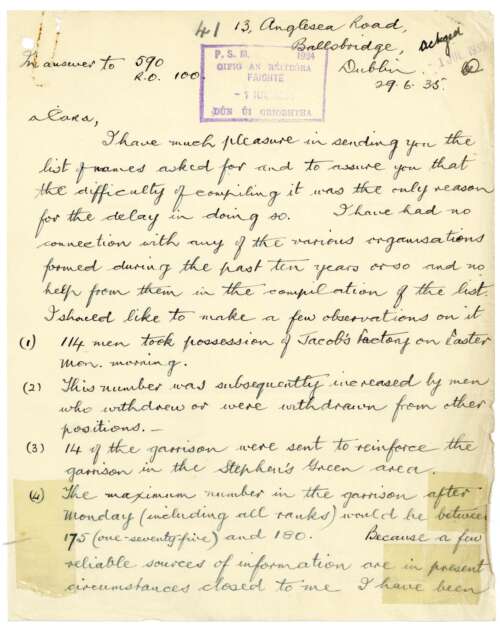 41 13, Anglesea Road,
Ballsbridge,
Dublin.
29.6.35.
Ackged
In answer to 590
R.O. 100.
P. S. M. 1934
OIFIG AN RÉITEÓRA
FAIGHTE
DÚN UÍ GRIOBHTHA
a Cara,
I have much pleasure in sending you the
list of names asked for and to assure you that
the difficulty of compiling it was the only reason
for the delay in doing so. I have had no
connection with any of the various organisations
formed during the past ten years or so and no
help from them in the compilation of the list.
I should like to make a few observations on it
(1) 114 men took possession of Jacob's Factory on Easter
Mon. morning.
(2) This number was subsequently increased by men
who withdrew or were withdrawn from other
positions. —
(3) 14 of the garrison were sent to reinforce the
garrison in the Stephen's Green area.
(4) The maximum number in the garrison after
Monday (including all ranks) would be between
175 (one-seventy-five) and 180. Because a few
reliable sources of information are in present
circumstances closed to me I have been